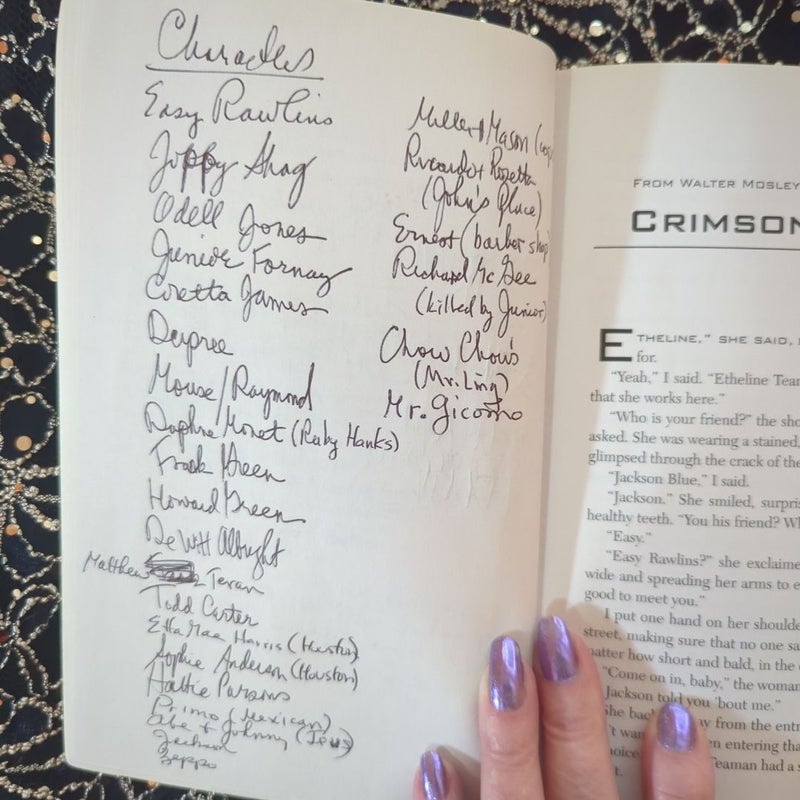 Characters
Easy Rawlins
Joppy Shag
Odell Jones
Junior Fornay
Coretta James
Dupree
Mouse/Raymond
Daphne Monet (Ruby Hanks)
Frank Green
Howard Green
DeWitt Albright
Matthew Teran
Todd Carter
Etta Mae Harris (Houston)
Sophie Anderson (Houston)
Hattie Parsons
Primo (Mexican)
Abe & Johnny (Jews)
Jackson
Zeppo
Miller & Mason (cops
Ricardo & Rosetta
(John's Place)
Ernest (barber shop
Richard McGee
(killed by Junior)
Chow Chow's
(Mr. Ling)
Mr. Gicomo
FROM WALTER MOSLEY
CRIMSON
ETHELINE," SHE SAID,
for.
"Yeah," I said. "Etheline Tear
that she works here."
"Who is your friend?" the sho
asked. She was wearing a stained,
glimpsed through the crack of the
"Jackson Blue," I said.
"Jackson." She smiled, surpris
healthy teeth. "You his friend? Wh
"Easy."
"Easy Rawlins?" she exclaime
wide and spreading her arms to e
good to meet you."
I put one hand on her shoulde
street, making sure that no one sa
matter how short and bald, in the
"Come on in, baby," the woman
Jackson told you 'bout me."
She bac y from the entr
't wan en entering tha
hoice Teaman had a s
t.